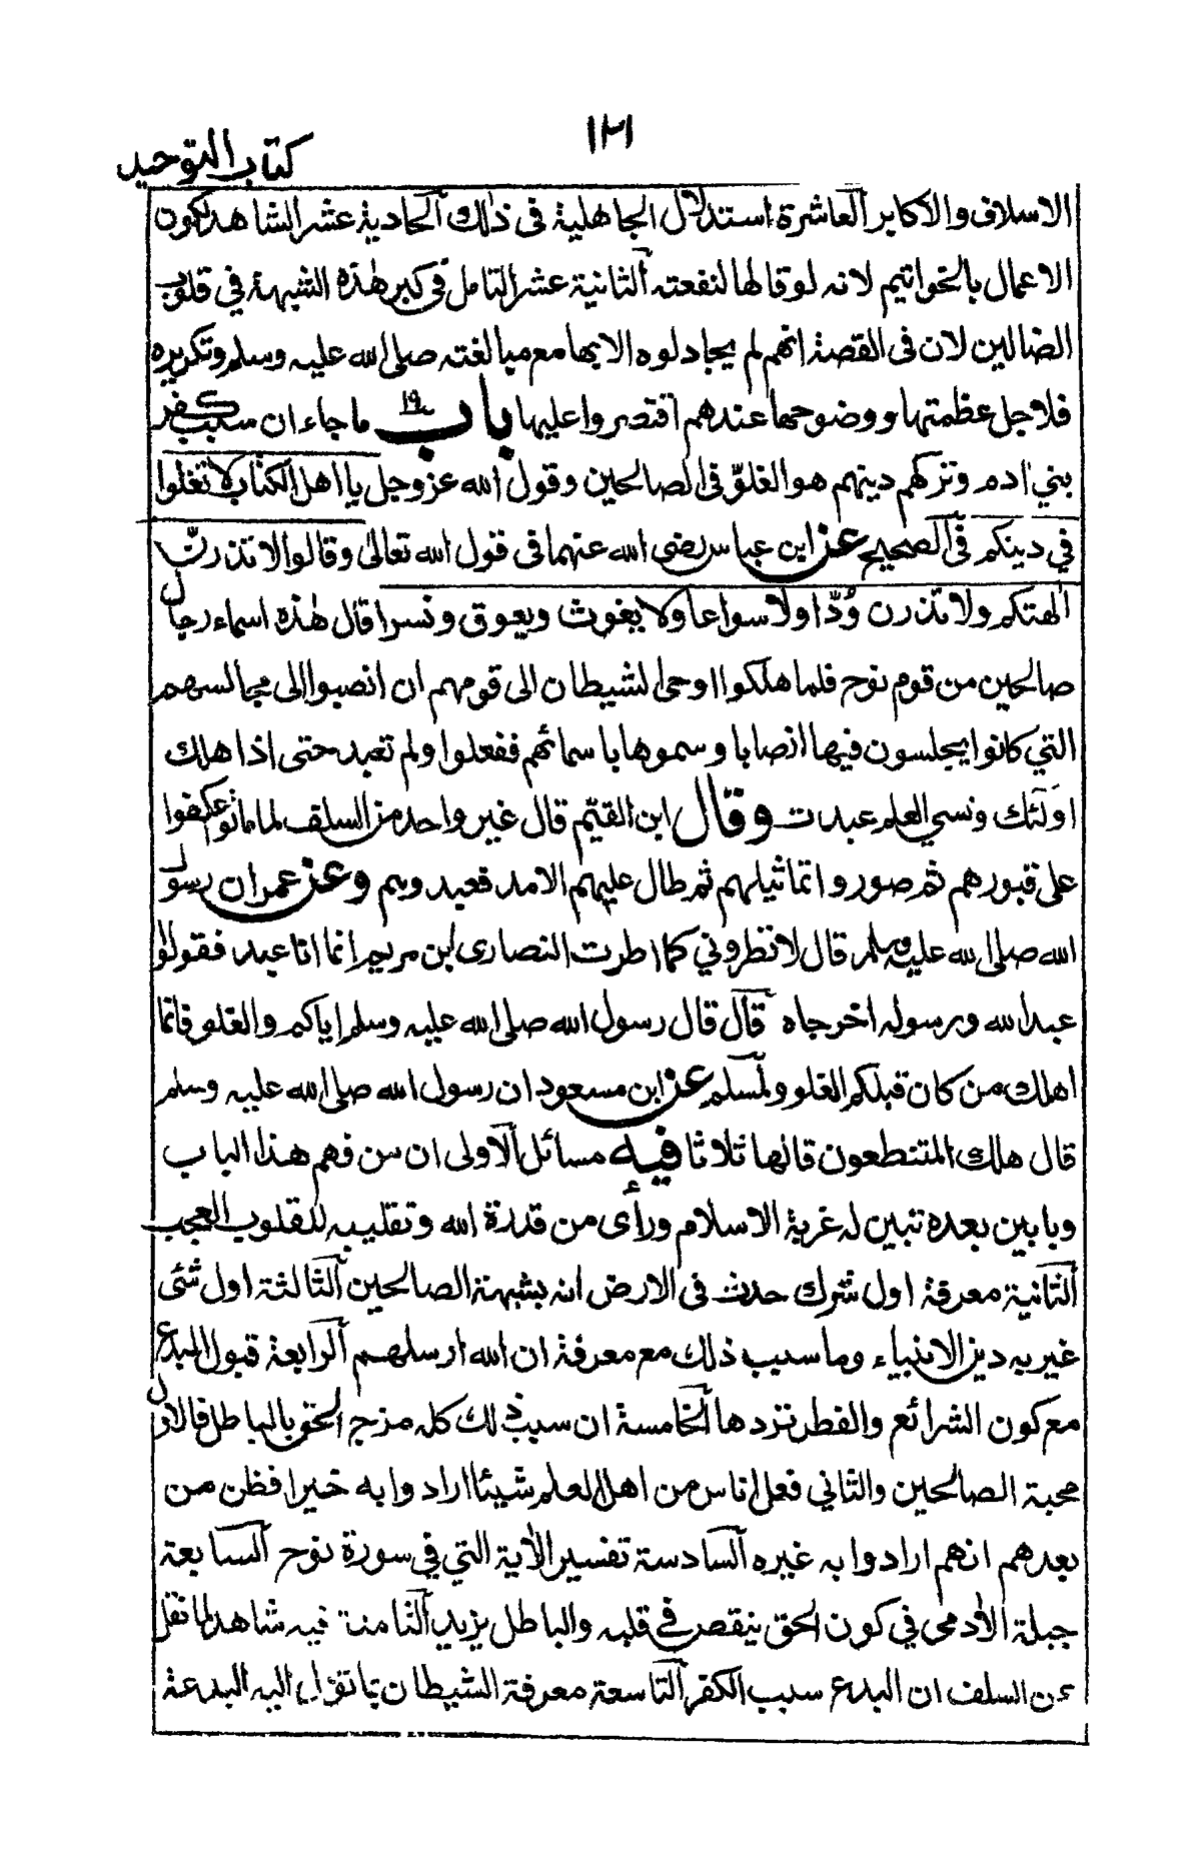 ١٢١
كتاب التوحيد
الاسلاف والاكابر العاشرة استدلال الجاهلية فى ذلك الحادية عشر الشاهد لكون
الاعمال بالخواتيم لانه لو قالها لنفعته الثانية عشر التامل فى كبر هذه الشبهة في قلوب
الضالين لان فى القصة انهم لم يجادلوه الا بها مع مبالغته صلى الله عليه وسلم وتكريره
فلاجل عظمتها ووضوحها عندهم اقتصروا عليها باب ١٩ ما جاء ان سبب كفر
بني ادم وتركهم دينهم هو الغلوّ فى الصالحين وقول الله عز وجل يا اهل الكتاب لا تغلوا
في دينكم فى الصحيح عن ابن عباس رضى الله عنهما فى قول الله تعالى وقالوا لا تذرنّ
الهتكم ولا تذرن وُدّا ولا سواعا ولا يغوث ويعوق ونسرا قال هذه اسماء رجال
صالحين من قوم نوح فلما هلكوا اوحى الشيطان الى قومهم ان انصبوا الى مجالسهم
التي كانوا يجلسون فيها انصابا وسموها باسمائهم ففعلوا ولم تعبد حتى اذا هلك
اولئك ونسي العلم عبدت وقال ابن القيّم قال غير واحد من السلف لما ماتوا عكفوا
على قبورهم ثم صوروا تماثيلهم ثم طال عليهم الامد فعبدوهم وعن عمران رسول
الله صلى الله عليه وسلم قال لا تطروني كما اطرت النصارى ابن مريم انما انا عبد فقولوا
عبد الله ورسوله اخرجاه قال قال رسول الله صلى الله عليه وسلم اياكم والغلو فانما
اهلك من كان قبلكم الغلو ولمسلم عن ابن مسعود ان رسول الله صلى الله عليه وسلم
قال هلك المتنطعون قالها ثلاثا فيه مسائل الاولى ان من فهم هذا الباب
وبابين بعده تبين له غربة الاسلام ورأى من قدرة الله وتقليبه للقلوب العجب
الثانية معرفة اول شرك حدث فى الارض انه بشبهة الصالحين الثالثة اول شئى
غير به دين الانبياء وما سبب ذلك مع معرفة ان الله ارسلهم الرابعة قبول البدع
مع كون الشرائع والفطر تردها الخامسة ان سبب ذلك كله مزج الحق بالباطل فالاول
محبة الصالحين والثاني فعل اناس من اهل العلم شيئا ارادوا به خيرا فظن من
بعدهم انهم ارادوا به غيره السادسة تفسير الاية التي في سورة نوح السابعة
جبلة الادمى في كون الحق ينقص في قلبه والباطل يزيد الثامنة فيه شاهد لما نقل
عن السلف ان البدع سبب الكفر التاسعة معرفة الشيطان بما تؤل اليه البدعة